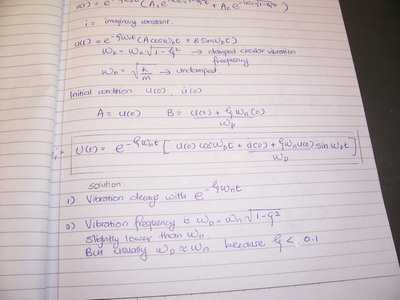 u(t) = e^-ξωnt (A₁e^iωn√1-ξ²t + A₂e^-iωn√1-ξ²t)
i = imaginary constant.
u(t) = e^-ξωnt (A cos ωDt + B sin ωDt)
ωD = ωn √1-ξ² → damped circular vibration
frequency
ωn = √k/m → undamped.
Initial condition u(0), u̇(0)
A = u(0) B = u̇(0) + ξωn(0) / ωD
U(t) = e^-ξωnt [ u(0) cos ωDt + u̇(0) + ξωn u(0) sin ωDt / ωD ]
solution
1) Vibration decays with e^-ξωnt
2) Vibration frequency is ωD = ωn √1-ξ²
slightly lower than ωn
But usually ωD ≈ ωn because ξ < 0.1